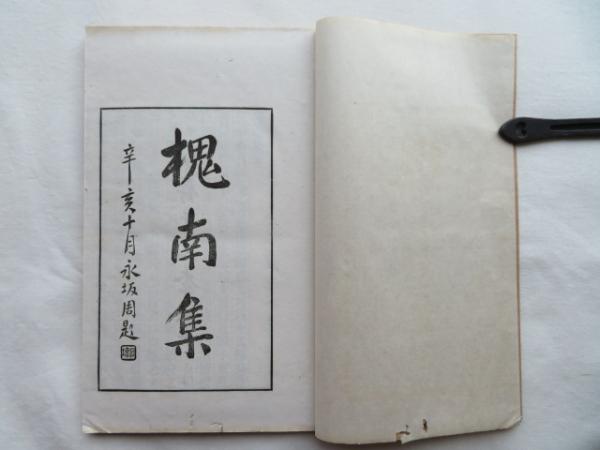 槐南集
辛亥十月永坂周題